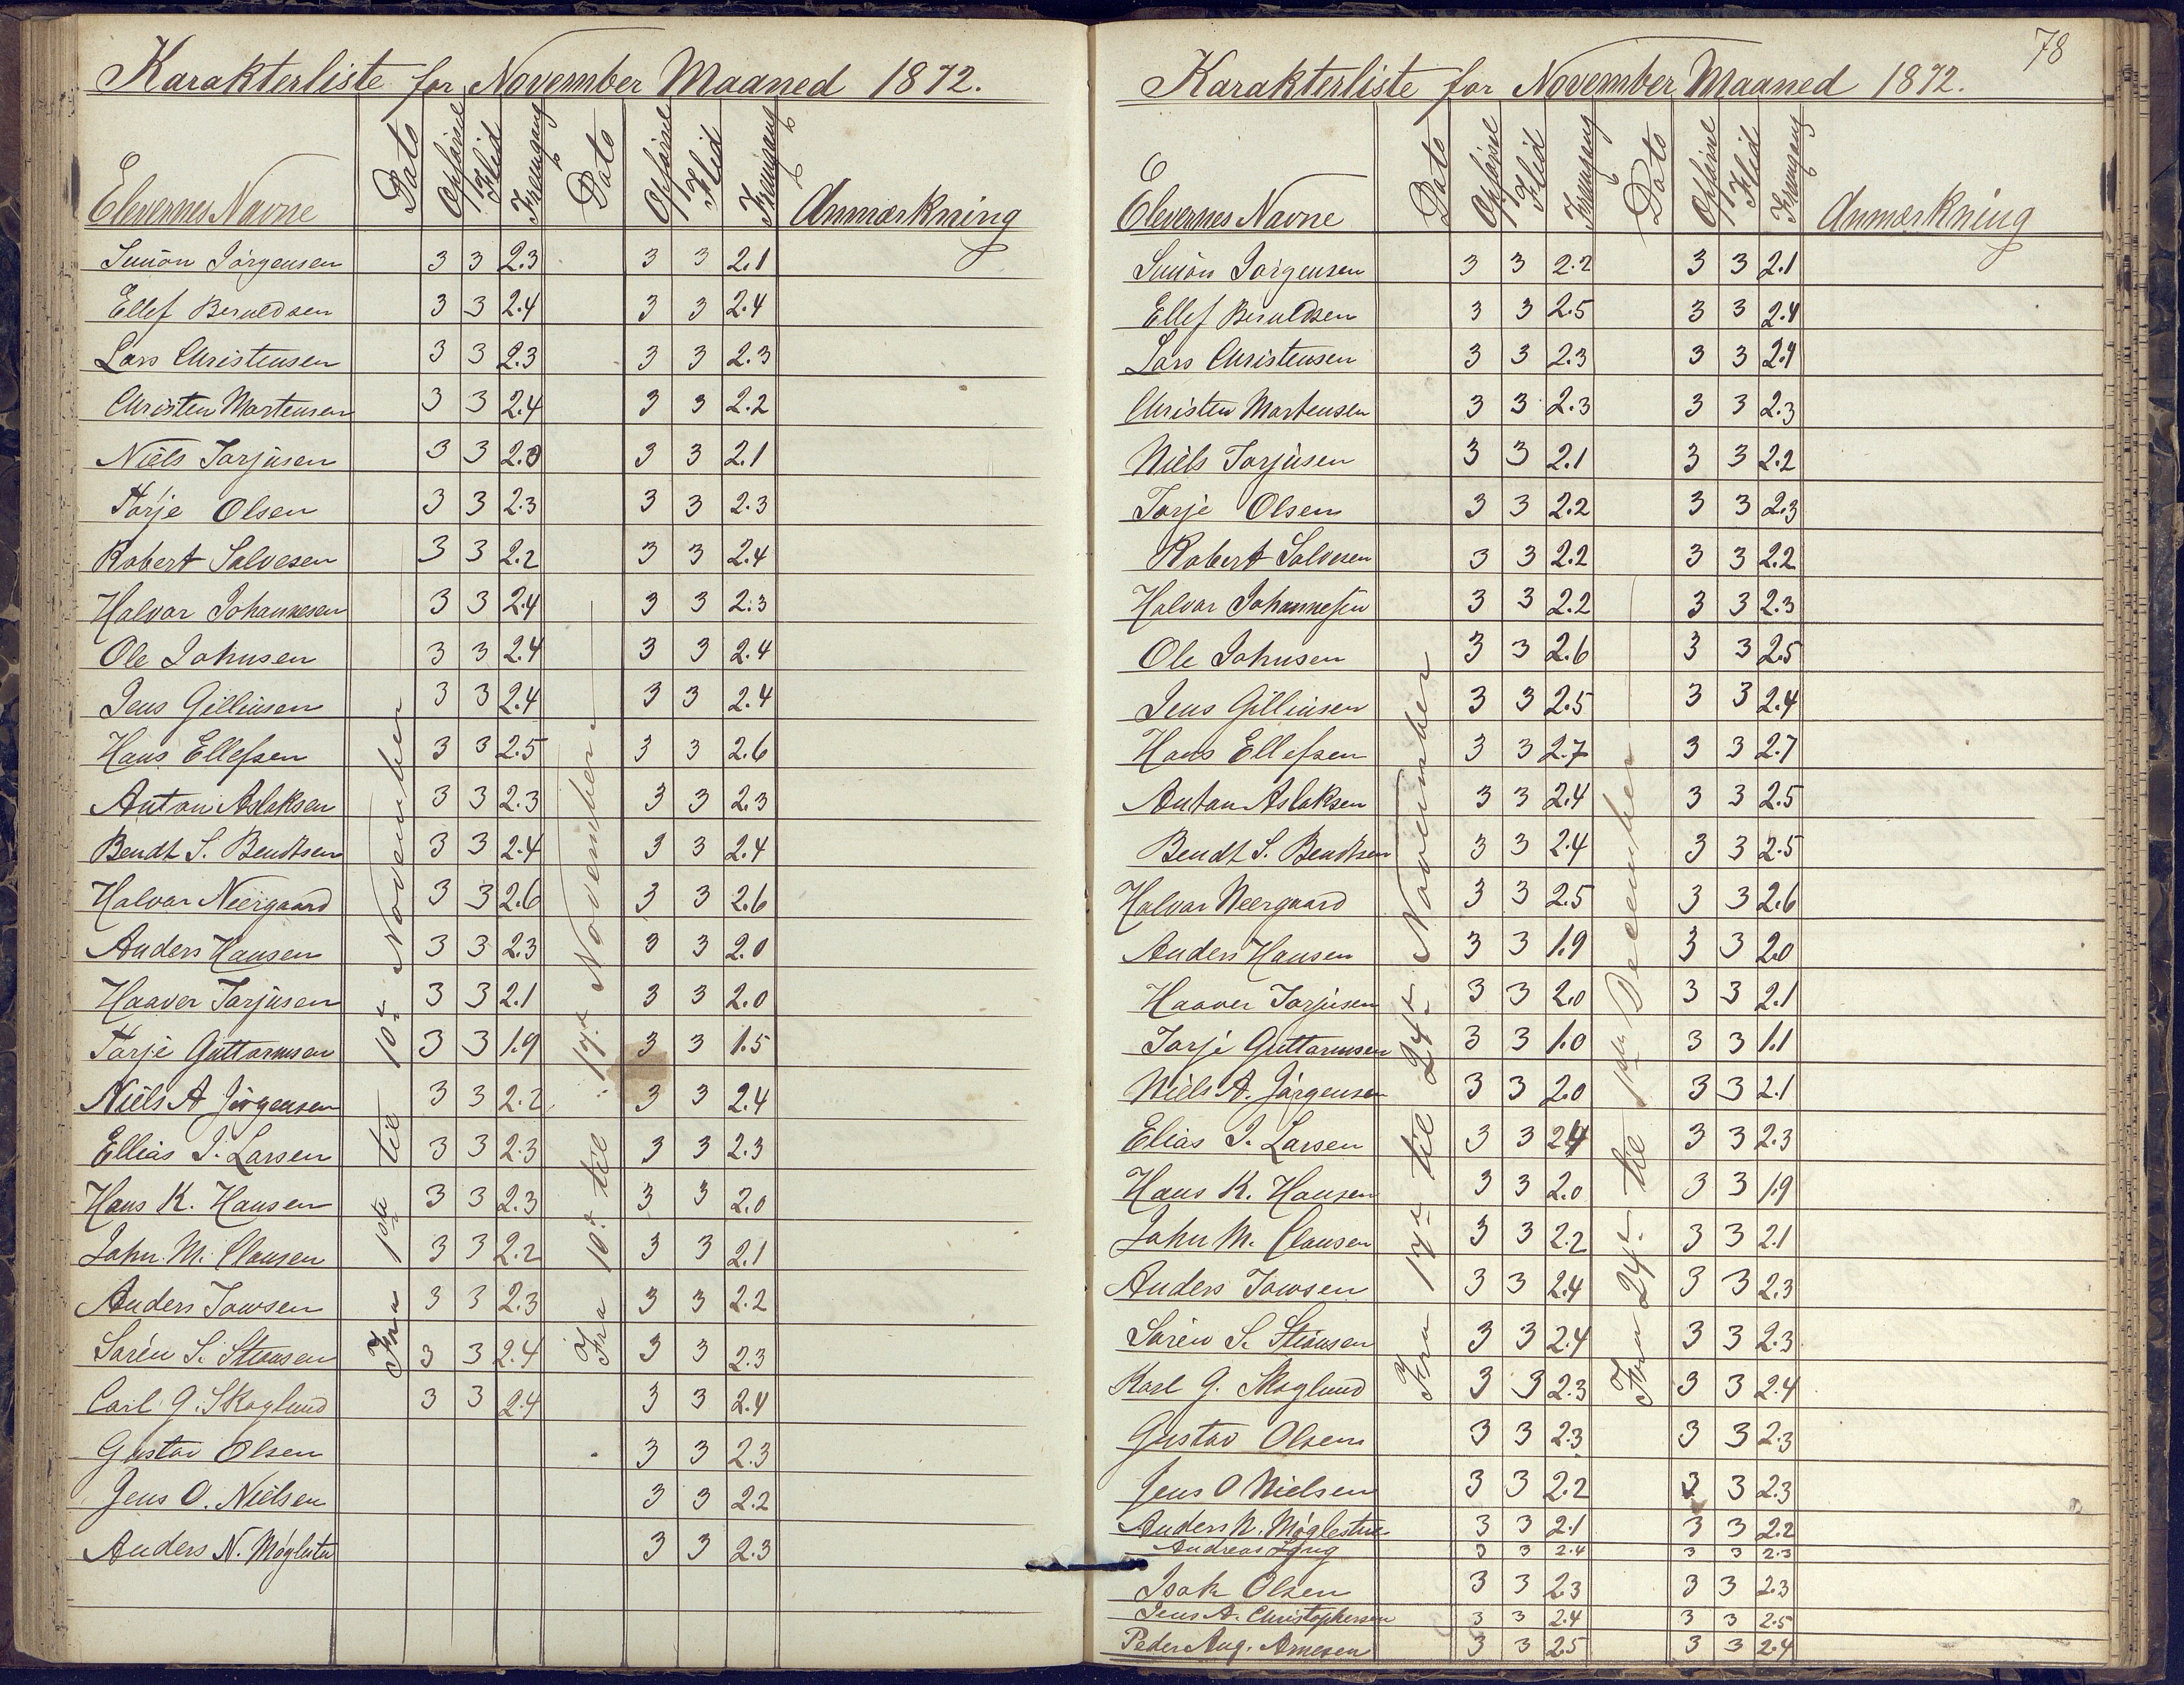 Karakterliste for November Maaned 1872.
Elevernes Navne Dato Opførsel Flid Fremgang Dato Opførsel Flid Fremgang Anmærkning
Fra 1ste til 10de November
Fra 10de til 17de November
Simon Jørgensen 3 3 2.3 3 3 2.1
Ellef Beruldsen 3 3 2.4 3 3 2.4
Lars Christensen 3 3 2.3 3 3 2.3
Christen Mortensen 3 3 2.4 3 3 2.2
Niels Torjusen 3 3 2.3 3 3 2.1
Torje Olsen 3 3 2.3 3 3 2.3
Robert Salvesen 3 3 2.2 3 3 2.4
Halvor Johannesen 3 3 2.4 3 3 2.3
Ole Johnsen 3 3 2.4 3 3 2.4
Jens Gillinsen 3 3 2.4 3 3 2.4
Hans Ellefsen 3 3 2.5 3 3 2.6
Anton Aslaksen 3 3 2.3 3 3 2.3
Bendt S. Bendtsen 3 3 2.4 3 3 2.4
Halvor Neergaard 3 3 2.6 3 3 2.6
Anders Hansen 3 3 2.3 3 3 2.0
Haaver Torjusen 3 3 2.1 3 3 2.0
Torje Guttormsen 3 3 1.9 3 3 1.5
Niels A Jørgensen 3 3 2.2 3 3 2.4
Ellias J. Larsen 3 3 2.3 3 3 2.3
Hans K. Hansen 3 3 2.3 3 3 2.0
John M. Clausen 3 3 2.2 3 3 2.1
Anders 3 3 2.3 3 3 2.2
Søren S. 3 3 2.4 3 3 2.3
Carl G. Skoglund 3 3 2.4 3 3 2.4
Gustav Olsen 3 3 2.3
Jens O. Nielsen 3 3 2.2
Anders N. Møglestu 3 3 2.3
78
Karakterliste for November Maaned 1872.
Elevernes Navne Dato Opførsel Flid Fremgang Dato Opførsel Flid Fremgang Anmærkning
Fra 17de til 24de November
Fra 24de til 1ste December
Simon Jørgensen 3 3 2.2 3 3 2.1
Ellef Beruldsen 3 3 2.5 3 3 2.4
Lars Christensen 3 3 2.3 3 3 2.4
Christen Mortensen 3 3 2.3 3 3 2.3
Niels Torjusen 3 3 2.1 3 3 2.2
Torje Olsen 3 3 2.2 3 3 2.3
Robert Salvesen 3 3 2.2 3 3 2.2
Halvor Johannesen 3 3 2.2 3 3 2.3
Ole Johnsen 3 3 2.6 3 3 2.5
Jens Gillinsen 3 3 2.5 3 3 2.4
Hans Ellefsen 3 3 2.7 3 3 2.7
Anton Aslaksen 3 3 2.4 3 3 2.5
Bendt S. Bendtsen 3 3 2.4 3 3 2.5
Halvor Neergaard 3 3 2.5 3 3 2.6
Anders Hansen 3 3 1.9 3 3 2.0
Haaver Torjusen 3 3 2.0 3 3 2.1
Torje Guttormsen 3 3 1.0 3 3 1.1
Niels A. Jørgensen 3 3 2.0 3 3 2.1
Elias J. Larsen 3 3 2.4 3 3 2.3
Hans K. Hansen 3 3 2.0 3 3 1.9
John M. Clausen 3 3 2.2 3 3 2.1
Anders 3 3 2.4 3 3 2.3
Søren S. 3 3 2.4 3 3 2.3
Karl G. Skoglund 3 3 2.3 3 3 2.4
Gustav Olsen 3 3 2.3 3 3 2.3
Jens O Nielsen 3 3 2.2 3 3 2.3
Anders N. Møglestue 3 3 2.1 3 3 2.2
Andreas 3 3 2.4 3 3 2.3
Isak Olsen 3 3 2.3 3 3 2.3
Jens A. Christophersen 3 3 2.4 3 3 2.5
Peder Aug. Arnesen 3 3 2.5 3 3 2.4